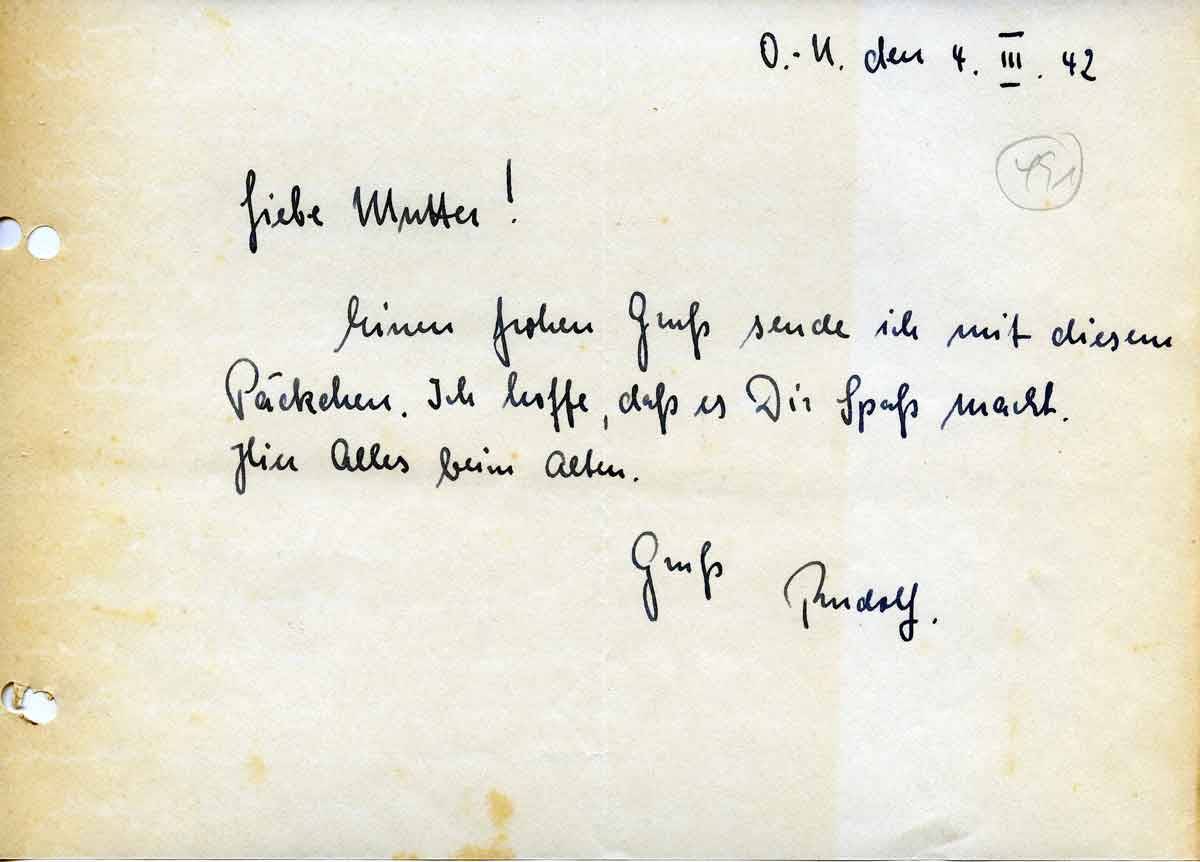 O.-U. den 4. III. 42
491
Liebe Mutter!
Einen frohen Gruß sende ich mit diesem
Päckchen. Ich hoffe, daß es Dir Spaß macht.
Hier Alles beim Alten.
Gruß
Rudolf.